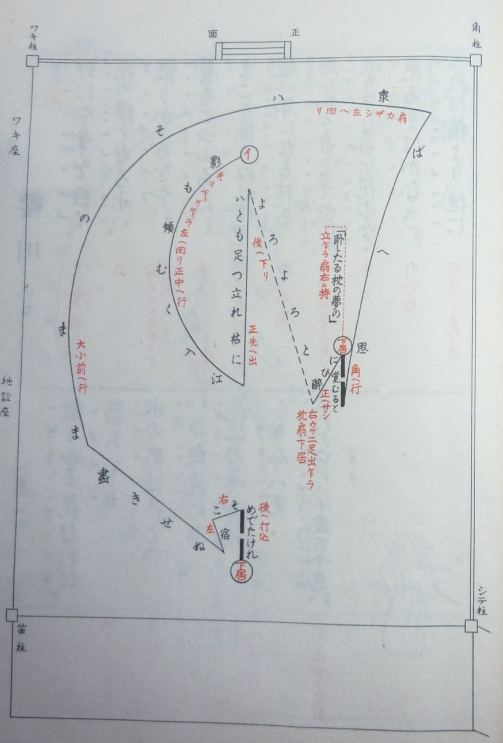 正面
角柱
ワキ柱
ワキ座
地謡座
笛柱
シテ柱
イ
影も傾むく入江
手ヲ下ゲ乍ラ左ヘ回リ正中ヘ行
に枯れ立つ足もとハ
正先ヘ出
よろよろと
後ヘ下リ
酔ひ
右ウケ二足出乍ラ
枕扇下居
下居
「臥したる枕の夢の」
立乍ラ扇右ニ持
に覚むると
正ヘサシ
思へば
角ヘ行
泉ハそのまま
扇カザシ左ヘ回リ
大小前ヘ行
盡きせぬ
宿
左
こそ
右
めでたけれ
後ヘ打込
下居